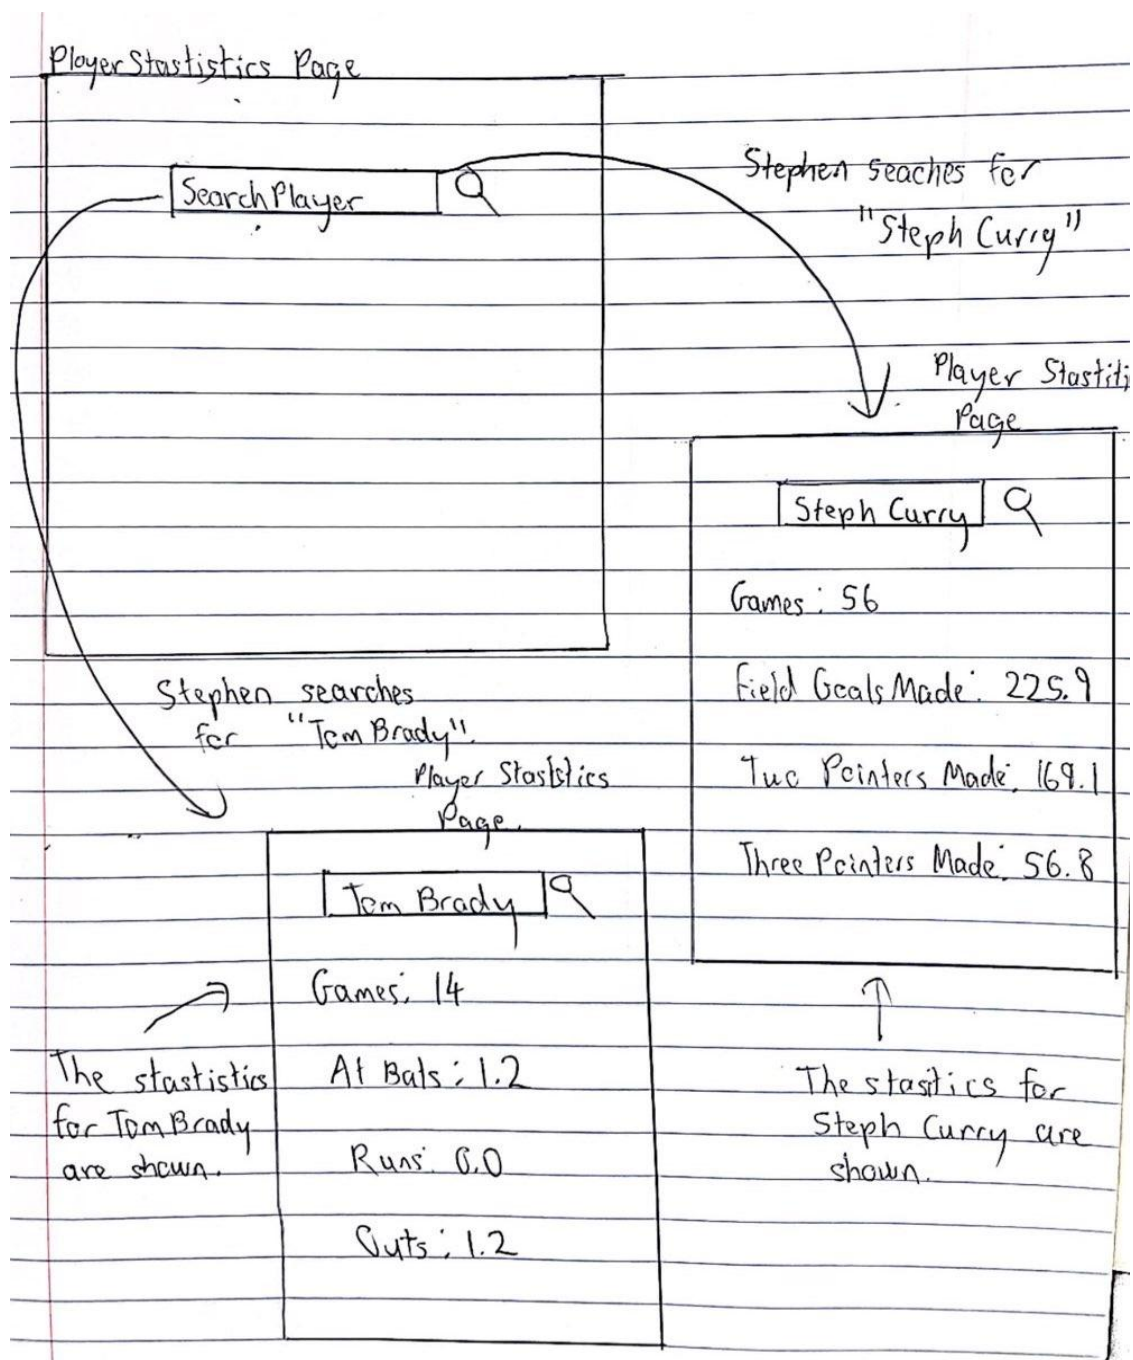 Player Stastistics Page
Search Player
Stephen seaches for
"Steph Curry"
Player Stastiti
Page
Steph Curry
Games: 56
Field Goals Made: 225.9
Two Pointers Made: 169.1
Three Pointers Made: 56.8
The stasitics for
Steph Curry are
shown.
Stephen searches
for "Tom Brady".
Player Stastistics
Page.
Tom Brady
Games: 14
At Bats: 1.2
Runs: 0.0
Outs: 1.2
The stastistics
for Tom Brady
are shown.